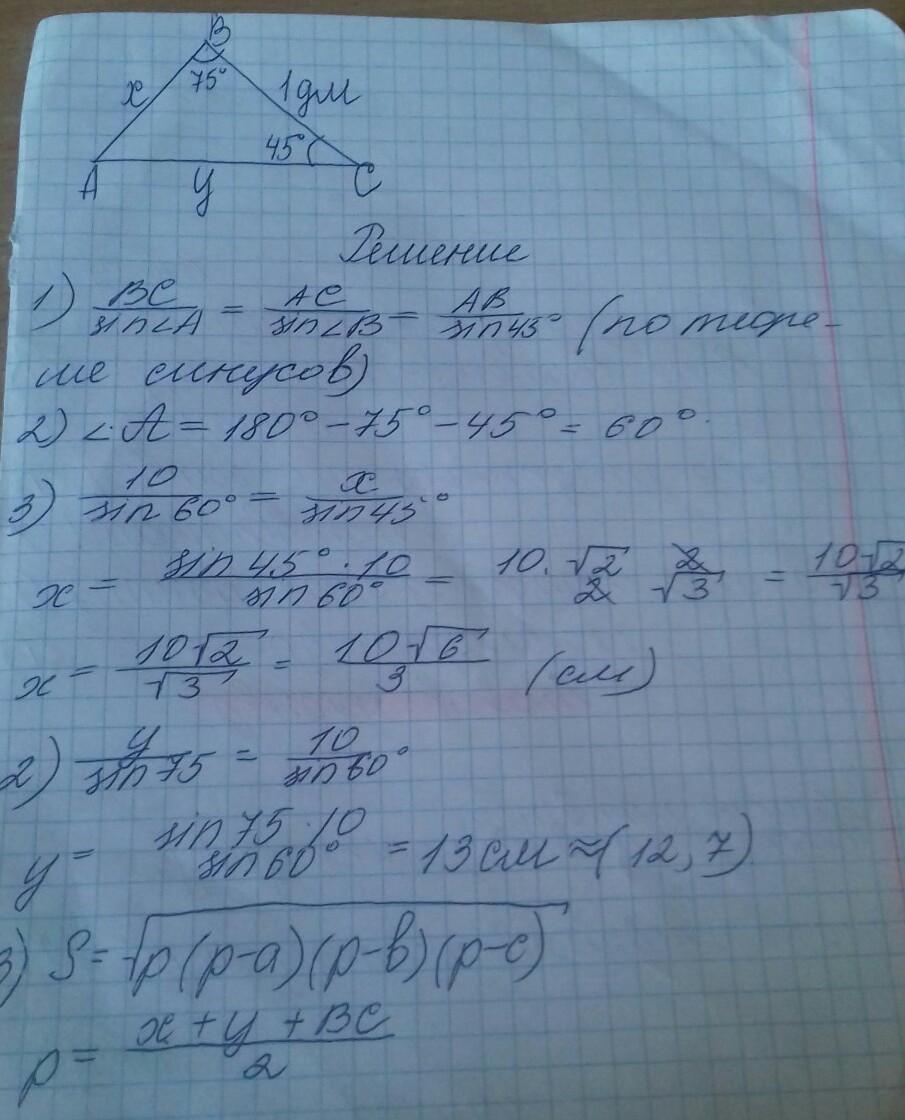 B
75°
x
1 дм
45°
A
y
C
Решение
1) BC/sin∠A = AC/sin∠B = AB/sin45° (по теоре-
ме синусов)
2) ∠A = 180° - 75° - 45° = 60°.
3) 10/sin60° = x/sin45°
x = sin45°·10/sin60° = 10·√2/2 2/√3 = 10√2/√3
x = 10√2/√3 = 10√6/3 (см)
2) y/sin75 = 10/sin60°
y = sin75·10/sin60° = 13 см ≈ (12,7)
3) S = √p(p-a)(p-b)(p-c)
p = x+y+BC/2